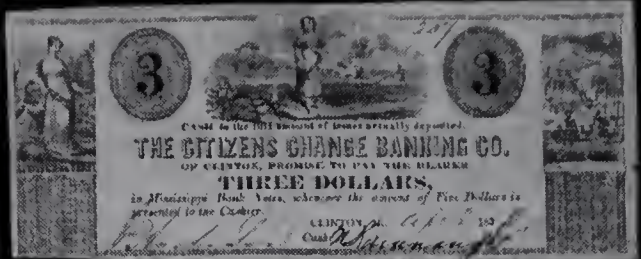 3 3
in the full amount of issues actually deposited.
THE CITIZENS CHANGE BANKING CO.
OF CLINTON, PROMISE TO PAY THE BEARER
THREE DOLLARS,
in Mississippi Bank Notes, whenever the amount of Five Dollars is
presented to the Cashier.
CLINTON, 183
Cash